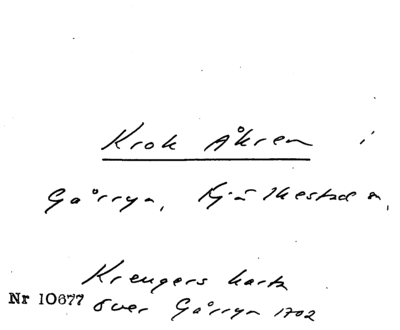 Krok Åkren i
Gårryn, Kjulkestad m,
Kreugers karta
Nr 10677 över Gårryn 1702